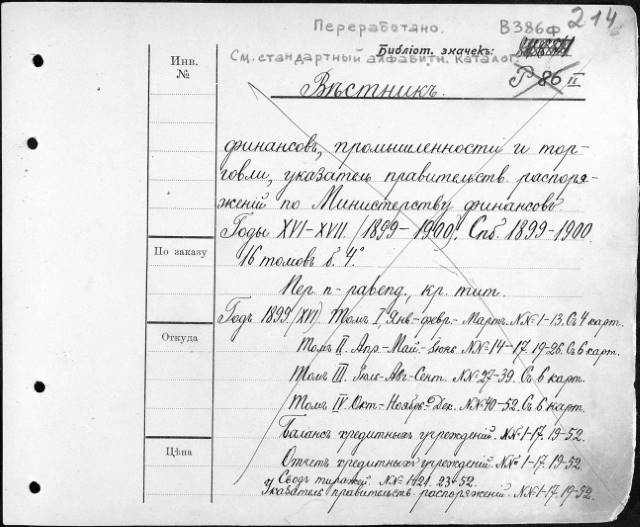 Переработано. В386ф 214
См. стандартный алфавитн. каталог.
Библіот. значекъ:
Р 86 II
Инв. №
Вѣстникъ.
финансовъ, промышленности и тор-
говли, указатель правительств. распоря-
женій по Министерству финансовъ
Годы XVI-XVII. (1899-1900). Спб. 1899-1900.
По заказу
16 томовъ б. 4°.
Пер. п-
кр. тит.
Годъ 1899 (XVI) Томъ I, Янв.-февр.-Мартъ. №№ 1-13. Съ 4 карт.
Откуда
Томъ II. Апр-Май-Іюнь. №№ 14-17. 19-26. Съ 6 карт.
Томъ III. Іюль-Авг-Сент. №№ 27-39. Съ 6 карт.
Томъ IV. Окт-Ноябрь-Дек. №№ 40-52. Съ 6 карт.
Балансъ кредитныхъ учрежденій. №№ 1-17. 19-52.
Цѣна
Отчетъ кредитныхъ учрежденій №№ 1-17. 19-52.
Сводъ тиражей. №№ 23-52.
Указатель правительств. распоряженій. №№ 1-17. 19-52.